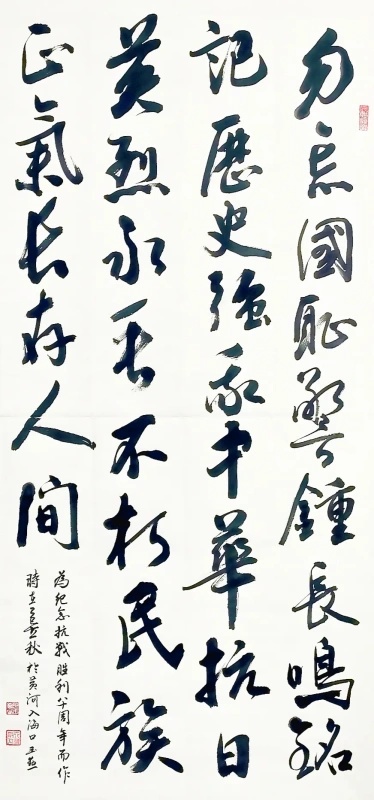 勿忘國耻警鐘長鳴銘
記歷史強我中華抗日
英烈永垂不朽民族
正氣長存人間
為紀念抗戰胜利八十周年而作
時在乙巳秋於黄河入海口